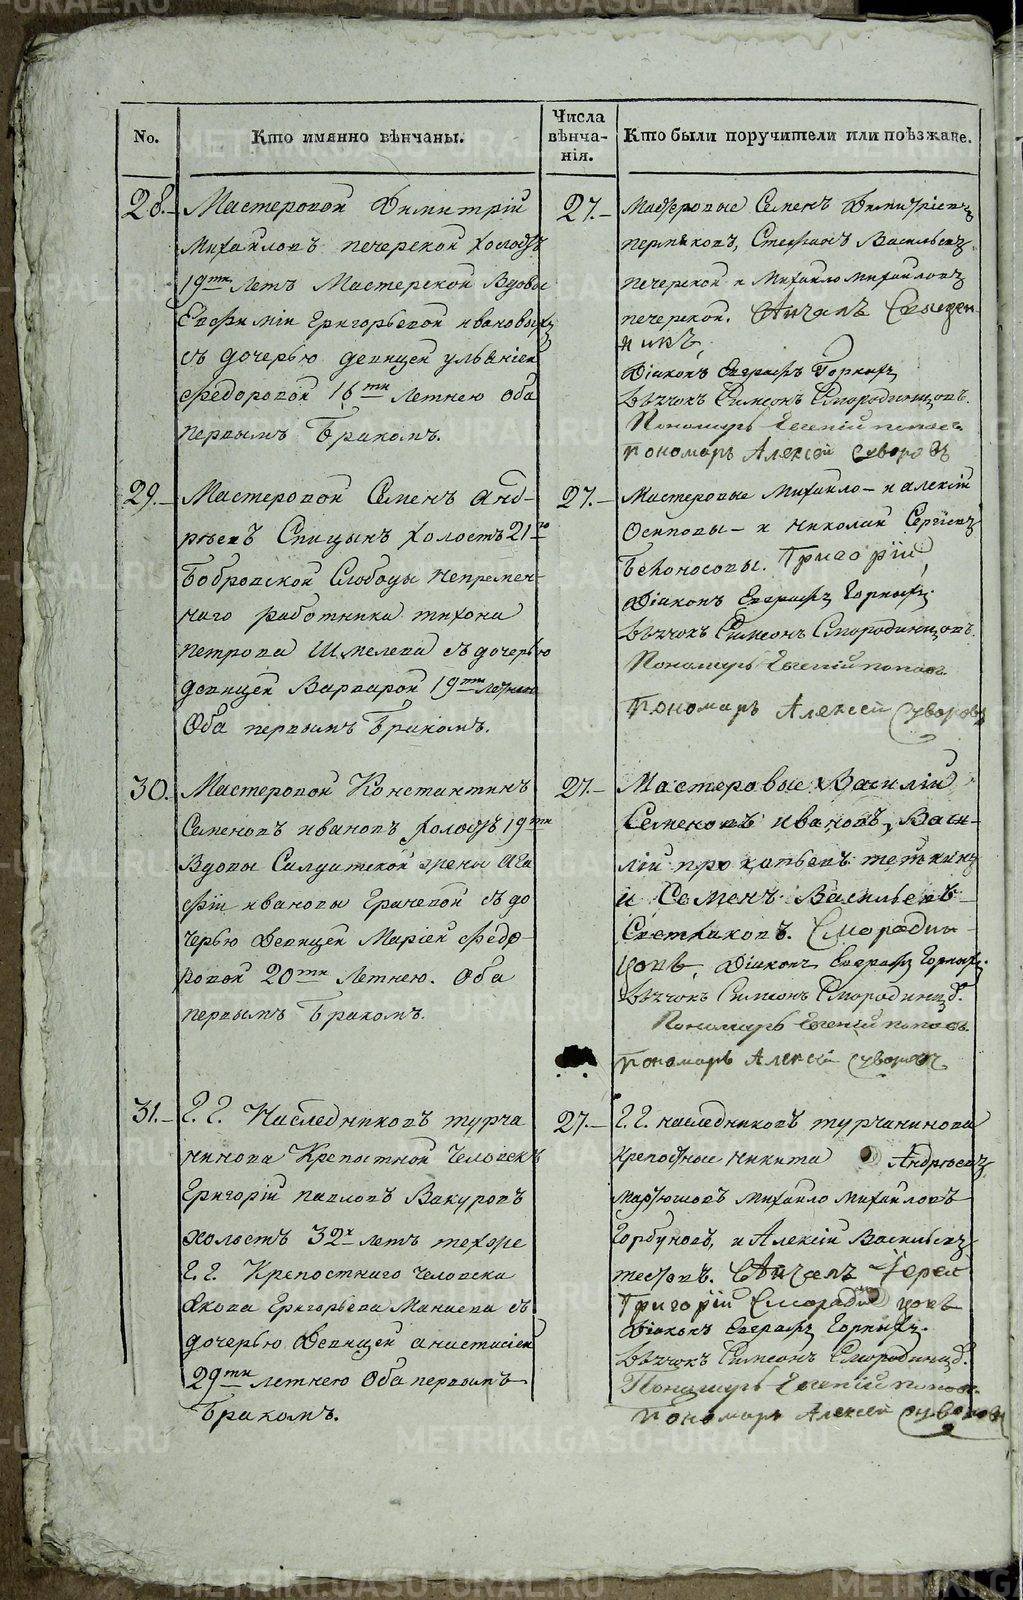 No.
Кто имянно вѣнчаны.
Числа
вѣнча-
нія.
Кто были поручители или поѣзжане.
28.
Мастеровой Димитрій
Михайловъ печерской холостъ
19ти Летъ Мастерской Вдовы
Евфиміи Григорьевой ивановыхъ
съ дочерью девицей ульяніей
Федоровой 16ти летнею Оба
первымъ Бракомъ.
27.
Мастеровые Семенъ Димитріевъ
пермяковъ, Стефанъ Васильевъ
печерской и Михайло михайловъ
печерской.
Діаконъ Евграфъ Горныхъ
Дьячокъ Симеонъ Смородинцовъ.
Пономарь Евгеній поповъ
Пономарь Алексей суворовъ
29.
Мастеровой Семенъ Анд-
реевъ Спицынъ холостъ 21го
Бобровской Слободы Непремен-
наго работника тихона
петрова Шмелева съ дочерью
девицей Варварой 19ти летнею
Оба первымъ Бракомъ.
27.
Мастеровые Михайло и алексій
Осиповы и николай Сергіевъ
Белоносовы. Григорій
Діаконъ Евграфъ Горныхъ.
Дьячокъ Симеонъ Смородинцовъ.
Пономарь Евгеній поповъ
Пономарь Алексей Суворовъ
30.
Мастеровой Константинъ
Семеновъ ивановъ холостъ 19ти
Вдовы Салдатской жены Ага
фіи ивановы Грачевой съ до
черью Девицей Маріей Федо-
ровой 20ти Летнею. Оба
первымъ Бракомъ.
27.
Мастеровые Василій
Семеновъ ивановъ, Васи-
лій прокопьевъ тетькинъ
и Семенъ Васильевъ
Светлаковъ. Смородин-
цовъ, Діаконъ Евграфъ Горныхъ.
Дьячокъ Симеонъ Смородинцовъ.
Пономарь Евгеній поповъ.
Пономарь Алексей суворовъ
31.
Г. Г. Наследниковъ турча
нинова Крепостной Человекъ
Григорій павловъ Вакуровъ
холостъ 32х летъ техже
Г. Г. Крепостнаго человека
Якова Григорьева Манаева съ
дочерью Девицей анастасіей
29ти летнею Оба первымъ
Бракомъ.
27.
Г. Г. наследниковъ турчанинова
крепостные никита Андреевъ
мартюшовъ михайло михайловъ
Горбуновъ, и Алексій Васильевъ
тестовъ.
Григорій Смородинцовъ
Діаконъ Евграфъ Горныхъ.
Дьячокъ Симеонъ Смородинцовъ.
Пономарь Евгеній поповъ.
Пономарь Алексей суворовъ
METRIKI.GASO-URAL.RU